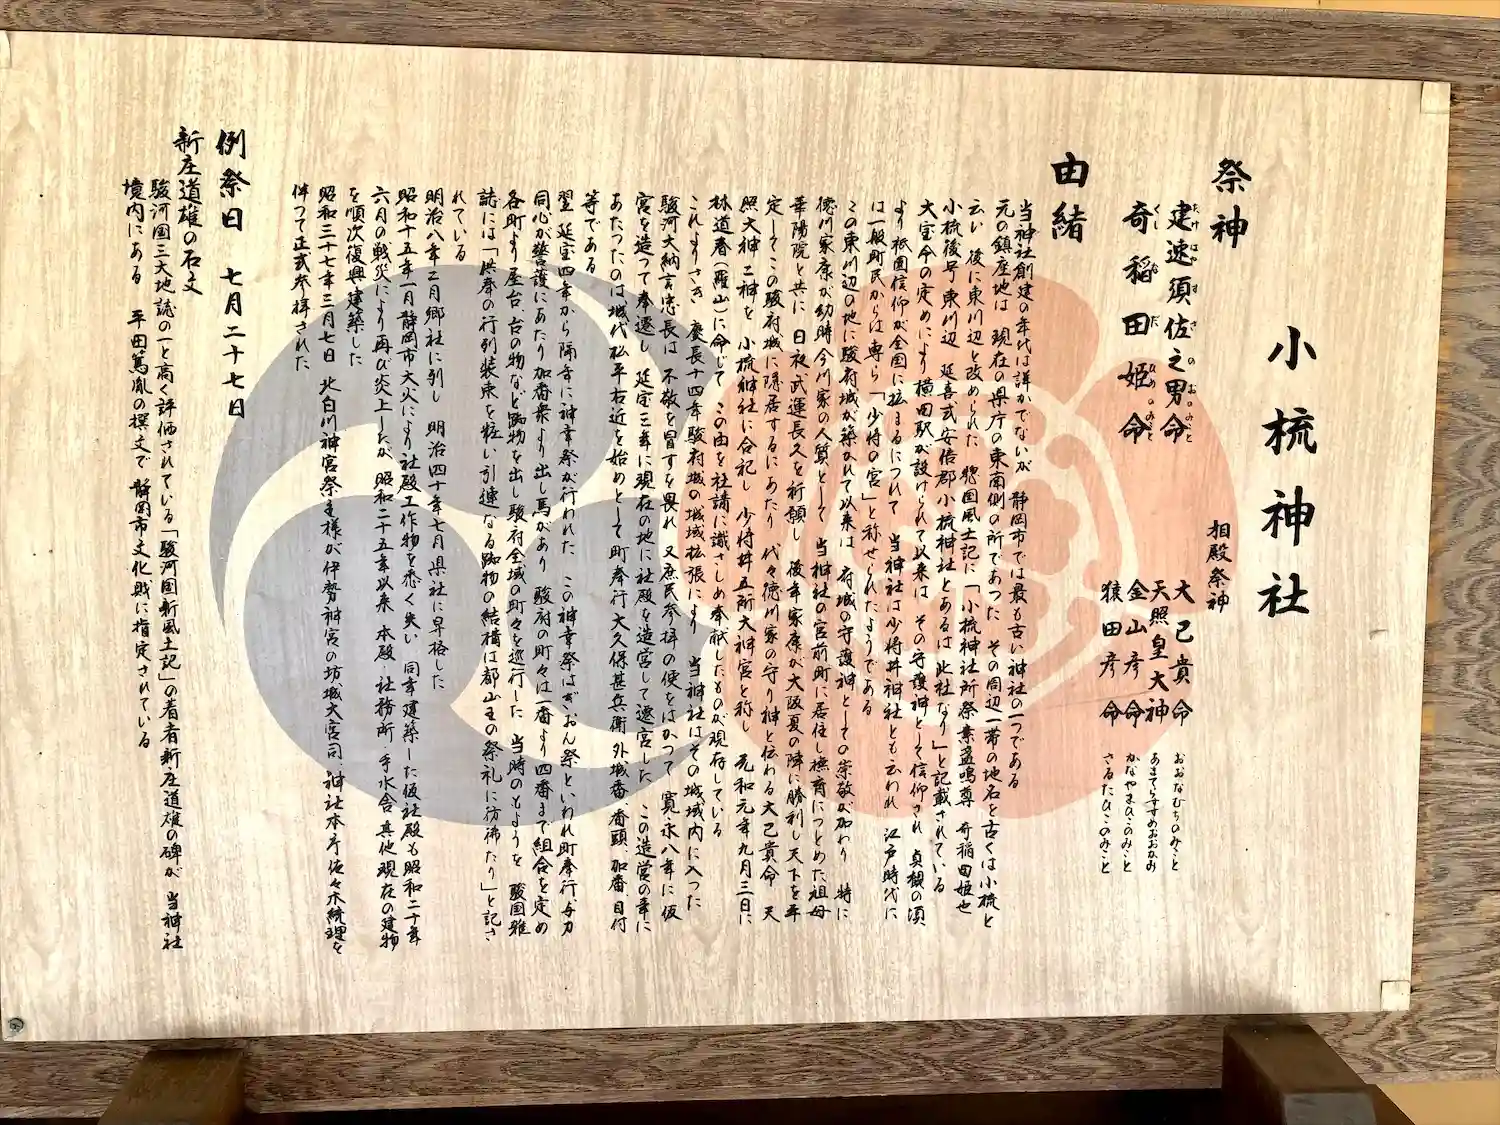 小梳神社
祭神
建速須佐之男命
たけはやすさのおのみこと
奇稲田姫命
くしなだひめのみこと
相殿祭神
大己貴命 おおなむちのみこと
天照皇大神 あまてらすすめおおかみ
金山彦命 かなやまひこのみこと
猿田彦命 さるたひこのみこと
由緒
当神社創建の年代は詳かでないが 静岡市では最も古い神社の一つである
元の鎮座地は 現在の県庁の東南側の所であつた その周辺一帯の地名を古くは小梳と
云い 後に東川辺と改められた 惣国風土記に「小梳神社所祭素盞嗚尊 奇稲田姫也
小梳後号東川辺 延喜式安倍郡小梳神社とあるは此社なり」と記載されている
大宝令の定めにより 横田駅が設けられて以来は その守護神として信仰され 貞観の頃
より祇園信仰が全国に拡まるにつれて 当神社は少将井神社とも云われ 江戸時代に
は一般町民からは専ら「少将の宮」と称せられたようである
この東川辺の地に駿府城が築かれて以来は 府城の守護神としての崇敬が加わり 特に
徳川家康が幼時今川家の人質として 当神社の宮前町に居住し撫育につとめた祖母
華陽院と共に 日夜武運長久を祈願し 後年家康が大阪夏の陣に勝利し天下を平
定してこの駿府城に隠居するにあたり 代々徳川家の守り神と伝わる大己貴命 天
照大神二神を 小梳神社に合祀し 少将井五所大神宮と称し 元和元年九月三日に
林道春(羅山)に命じて この由を社誌に識さしめ奉献したものが現存している
これよりさき 慶長十四年駿府城の城域拡張により 当神社はその城域内に入つた
駿河大納言忠長は 不敬を冒すを畏れ 又庶民参拝の便をはかつて 寛永八年に仮
宮を造つて奉遷し 延宝三年に現在の地に社殿を造営して遷宮した この造営の年に
あたつたのは城代松平右近を始めとして町奉行大久保甚兵衛外城番、番頭、加番、目付
等である
翌 延宝四年から隔年に神幸祭が行われた この神幸祭はぎおん祭といわれ町奉行、与力
同心が警護にあたり加番衆より出し馬があり 駿府の町々は一番より四番まで組合を定め
各町より屋台、台の物など踟物を出し駿府全域の町々を巡行した 当時のもようを 駿国雅
誌には「供奉の行列装束を粧い引連なる踟物の結構は都山王の祭礼に彷彿たり」と記さ
れている
明治八年二月郷社に列し 明治四十年七月県社に昇格した
昭和十五年一月静岡市大火により社殿工作物を悉く失い 同年建築した仮社殿も昭和二十年
六月の戦災により再び炎上したが 昭和二十五年以来 本殿 社務所 手水舎 其他現在の建物
を順次復興建築した
昭和三十七年三月七日 北白川神宮祭主様が伊勢神宮の坊城大宮司 神社本庁佐々木統理を
伴つて正式参拝された
例祭日 七月二十七日
新庄道雄の石文
駿河国三大地誌の一と高く評価されている「駿河国新風土記」の著者新庄道雄の碑が 当神社
境内にある 平田篤胤の撰文で 静岡市文化財に指定されている